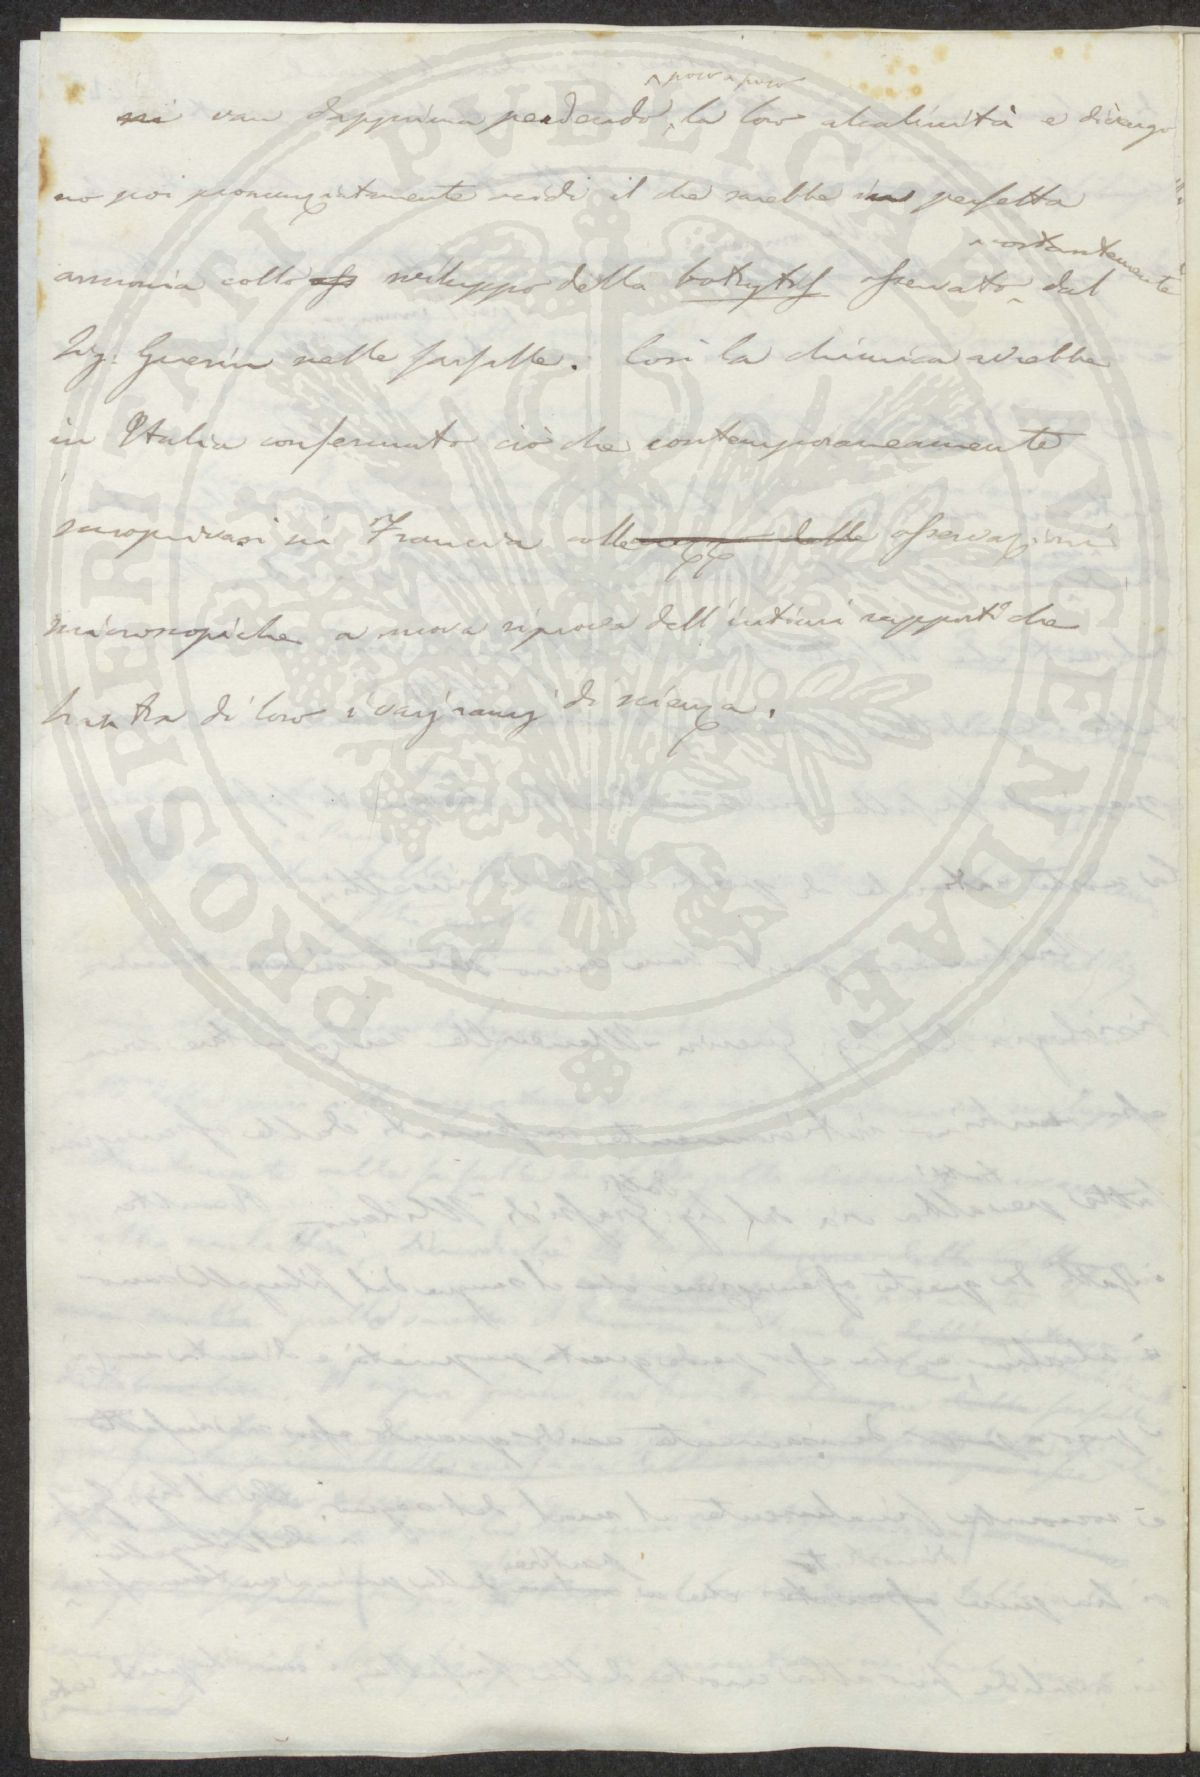 ni van dapprima perdendo poco a poco la loro alcalinità e divengo
no poi pronunziatamente acidi il che sarebbe in perfetta
armonia collo sviluppo della botrytis osservato costantemente dal
Sig. Guerin nelle farfalle. Così la chimica avrebbe
in Italia confermato ciò che contemporaneamente
scoprivasi in Francia colle osservazioni
microscopiche a nuova riprova dell'intimi rapporti che
han tra di loro i varj ramj di scienza.
PROSPERITATI PUBLICAE AUGENDAE